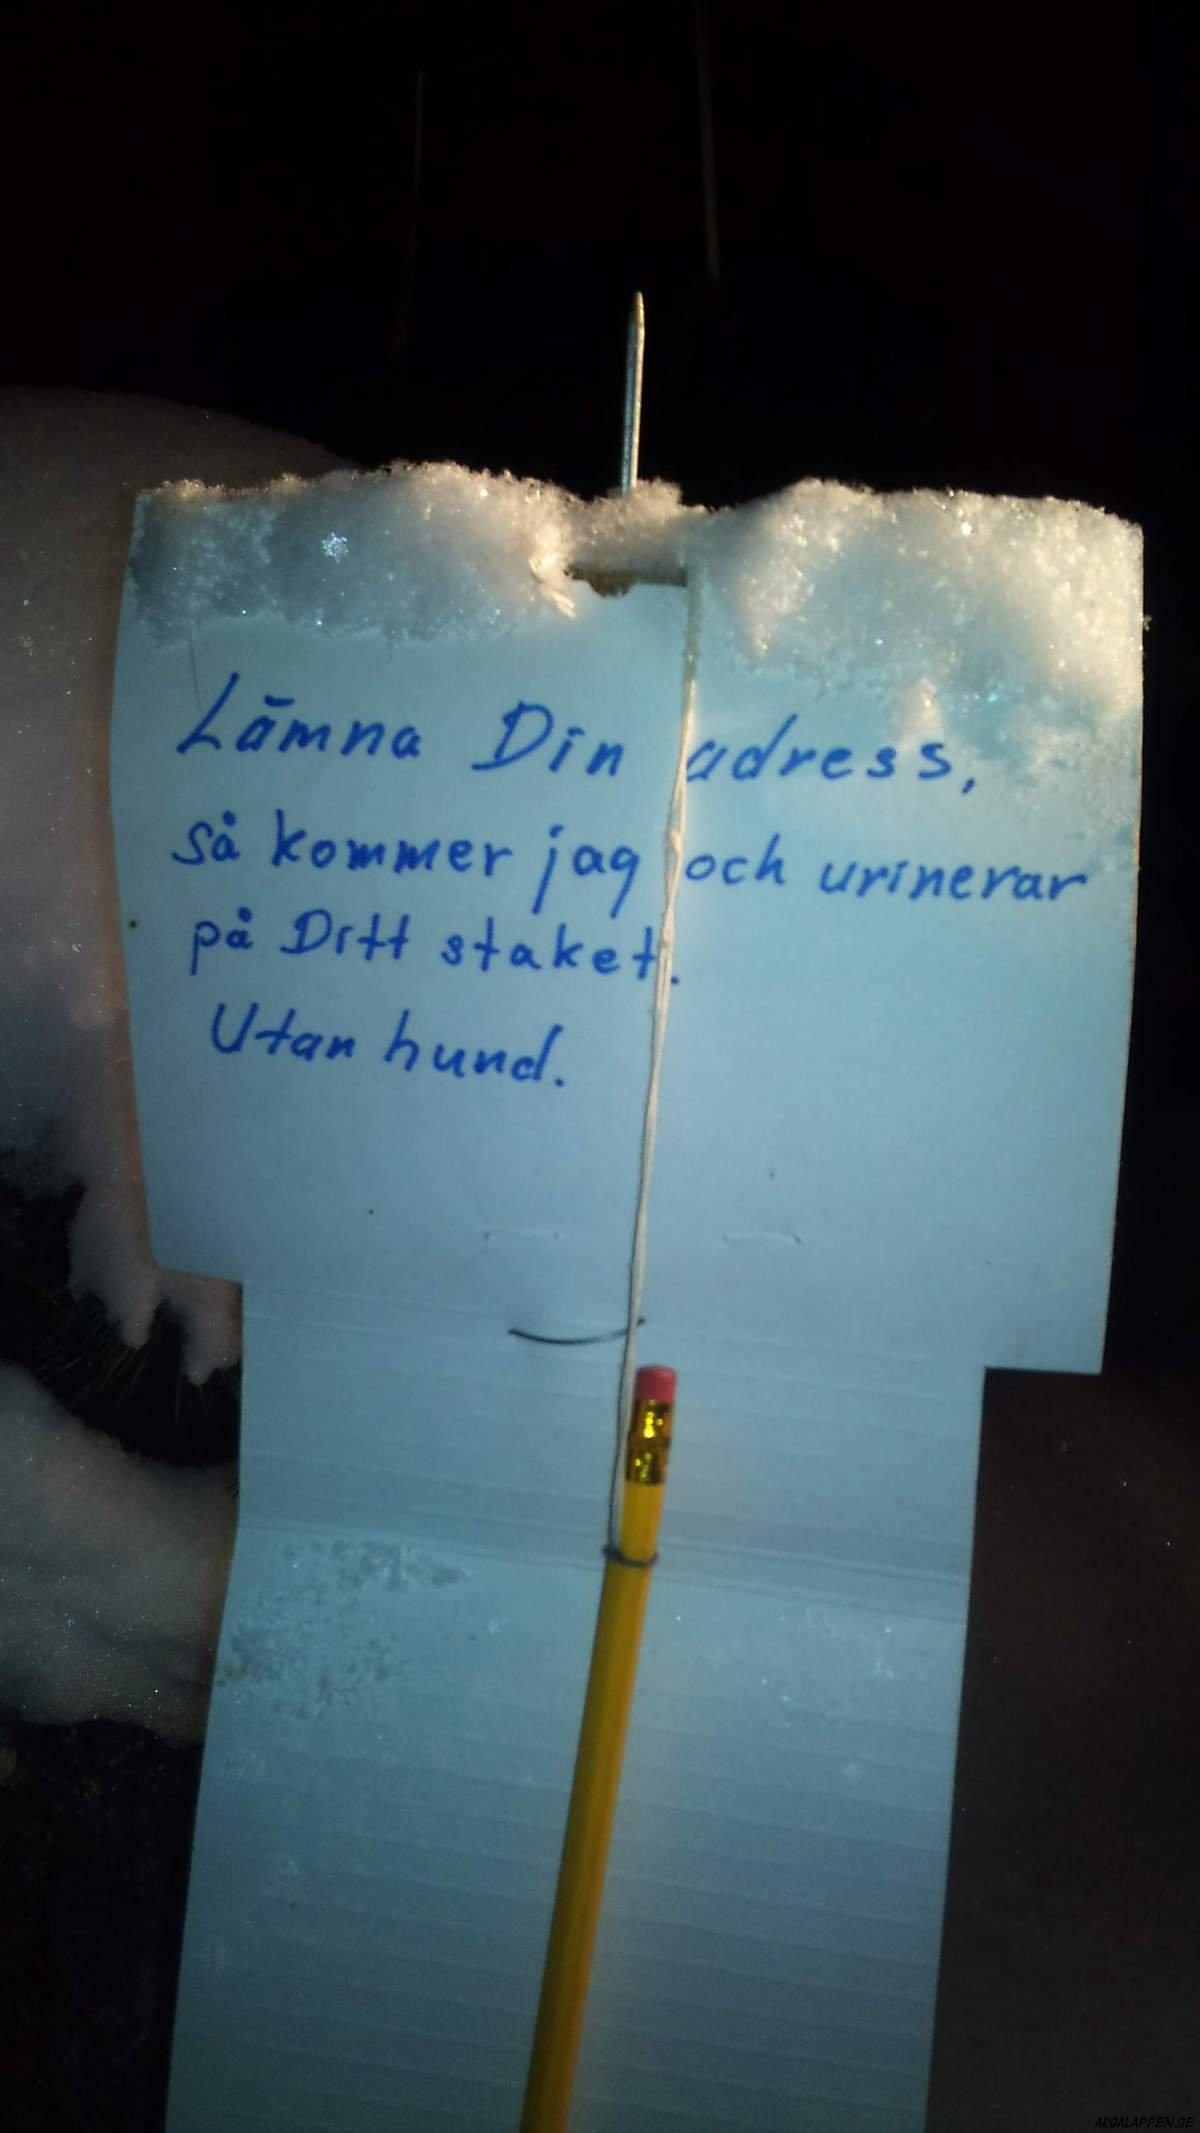 Lämna Din adress,
så kommer jag och urinerar
på Ditt staket.
Utan hund.
ARGALAPPEN.SE